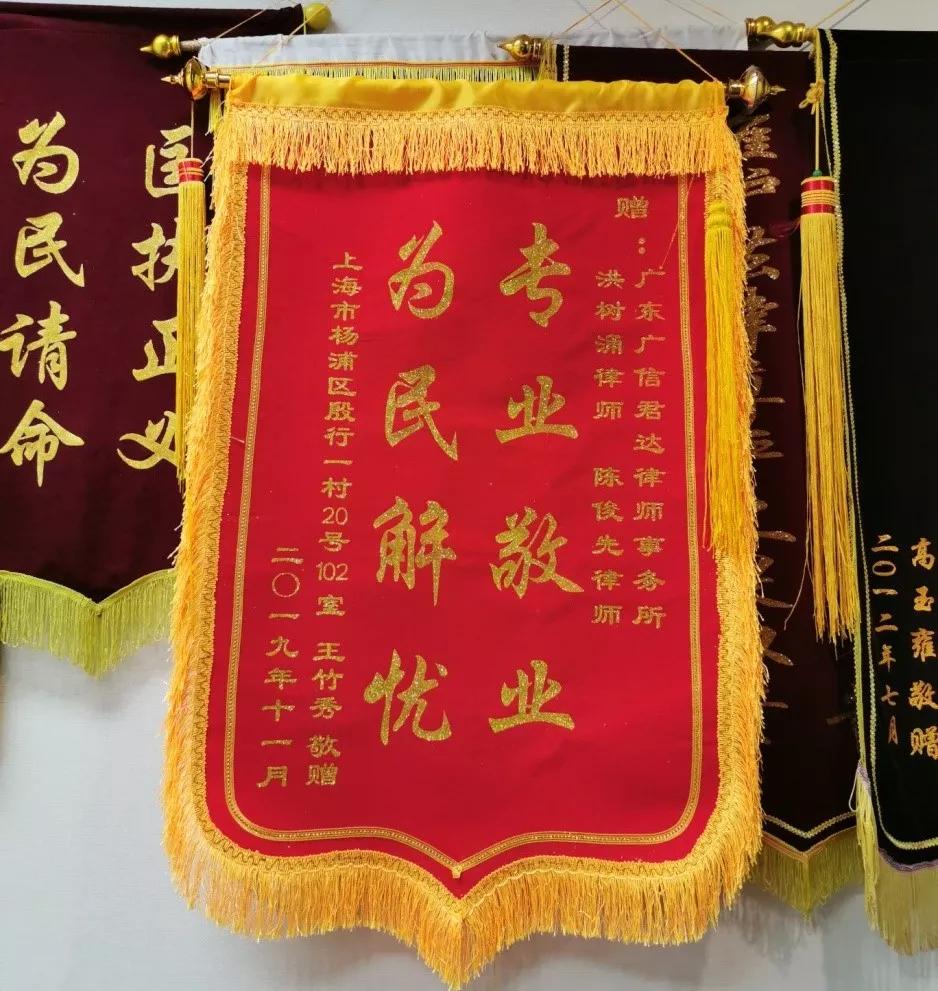 赠：广东广信君达律师事务所
洪树涌律师 陈俊先律师
专业敬业
为民解忧
上海市杨浦区殷行一村20号102室 王竹秀 敬赠
二〇一九年十一月
匡扶正义
为民请命
高玉雍敬赠
二〇一二年七月